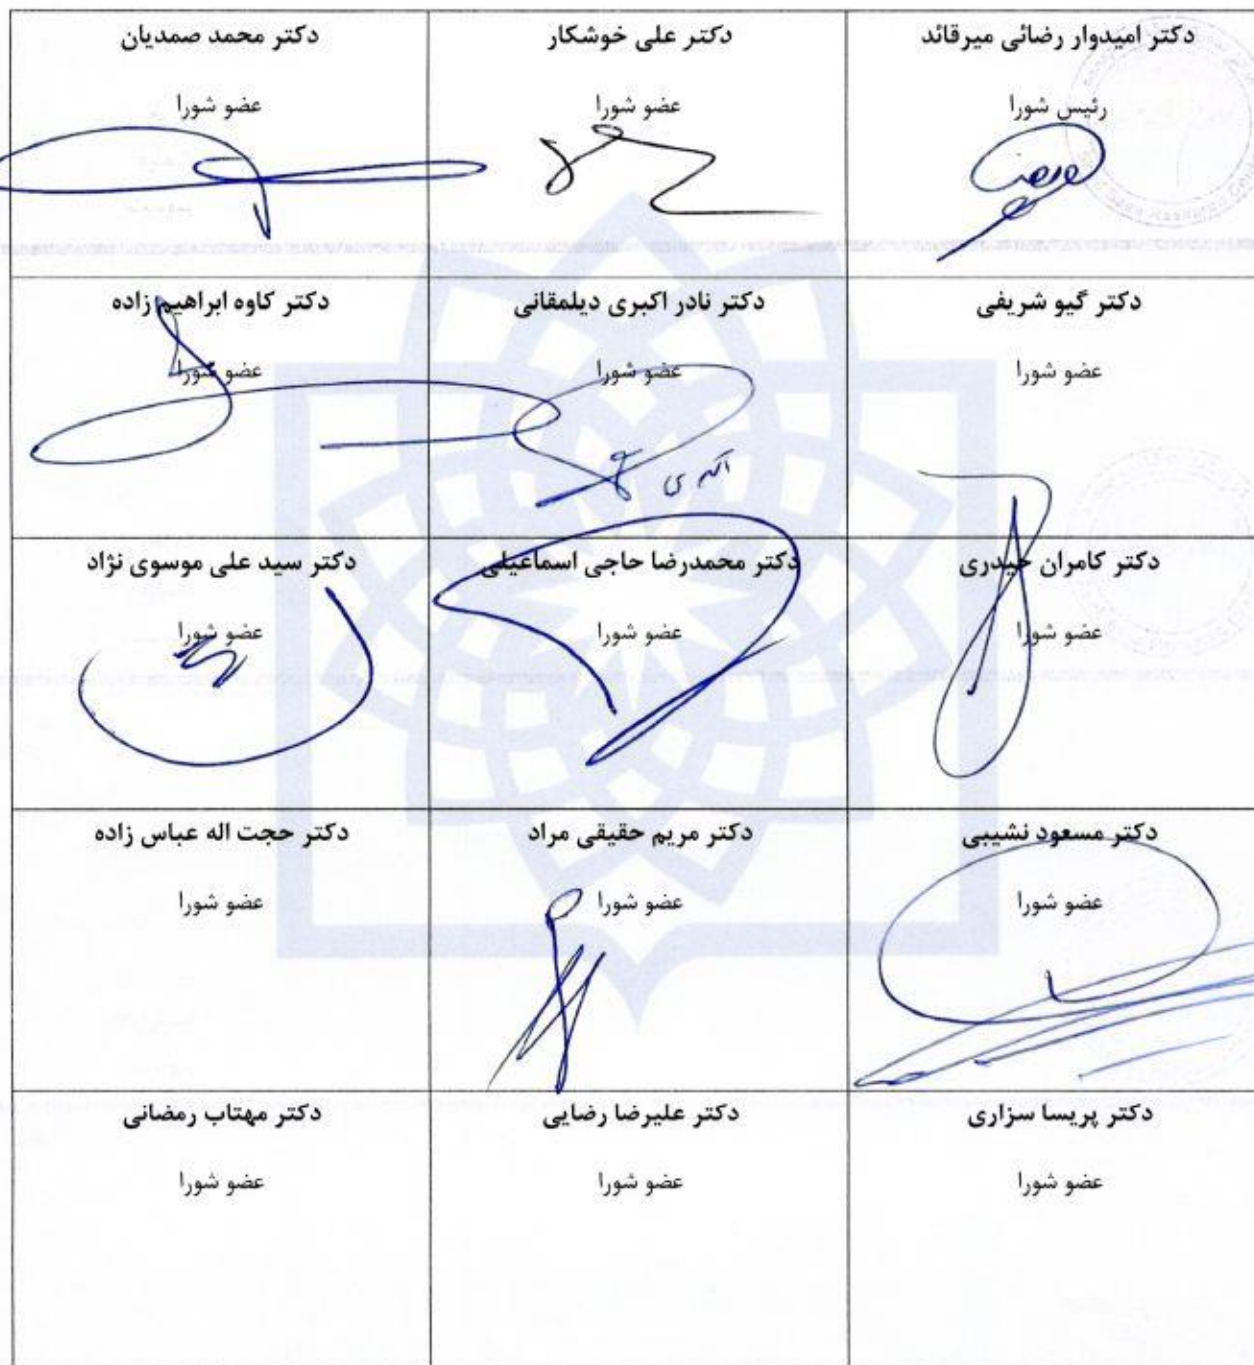 دکتر امیدوار رضائی میرقائد
رئیس شورا
دکتر علی خوشکار
عضو شورا
دکتر محمد صمدیان
عضو شورا
دکتر گیو شریفی
عضو شورا
دکتر نادر اکبری دیلمقانی
عضو شورا
دکتر کاوه ابراهیم زاده
عضو شورا
دکتر کامران حیدری
عضو شورا
دکتر محمدرضا حاجی اسماعیلی
عضو شورا
دکتر سید علی موسوی نژاد
عضو شورا
دکتر مسعود نشیبی
عضو شورا
دکتر مریم حقیقی مراد
عضو شورا
دکتر حجت اله عباس زاده
عضو شورا
دکتر پریسا سزاری
عضو شورا
دکتر علیرضا رضایی
عضو شورا
دکتر مهتاب رمضانی
عضو شورا